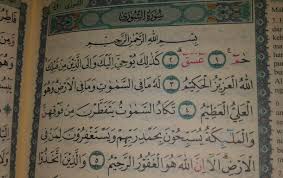 سُورَةُ الشُّورَىٰ
بِسْمِ اللَّهِ الرَّحْمَٰنِ الرَّحِيمِ
حمٓ ۝١ عٓسٓقٓ ۝٢ كَذَٰلِكَ يُوحِيٓ إِلَيْكَ وَإِلَى الَّذِينَ مِن قَبْلِكَ
اللَّهُ الْعَزِيزُ الْحَكِيمُ ۝٣ لَهُ مَا فِي السَّمَٰوَٰتِ وَمَا فِي الْأَرْضِ وَهُوَ
الْعَلِيُّ الْعَظِيمُ ۝٤ تَكَادُ السَّمَٰوَٰتُ يَتَفَطَّرْنَ مِن فَوْقِهِنَّ
وَالْمَلَٰٓئِكَةُ يُسَبِّحُونَ بِحَمْدِ رَبِّهِمْ وَيَسْتَغْفِرُونَ لِمَن فِي
الْأَرْضِ أَلَآ إِنَّ اللَّهَ هُوَ الْغَفُورُ الرَّحِيمُ ۝٥ وَالَّذِينَ اتَّخَذُوا